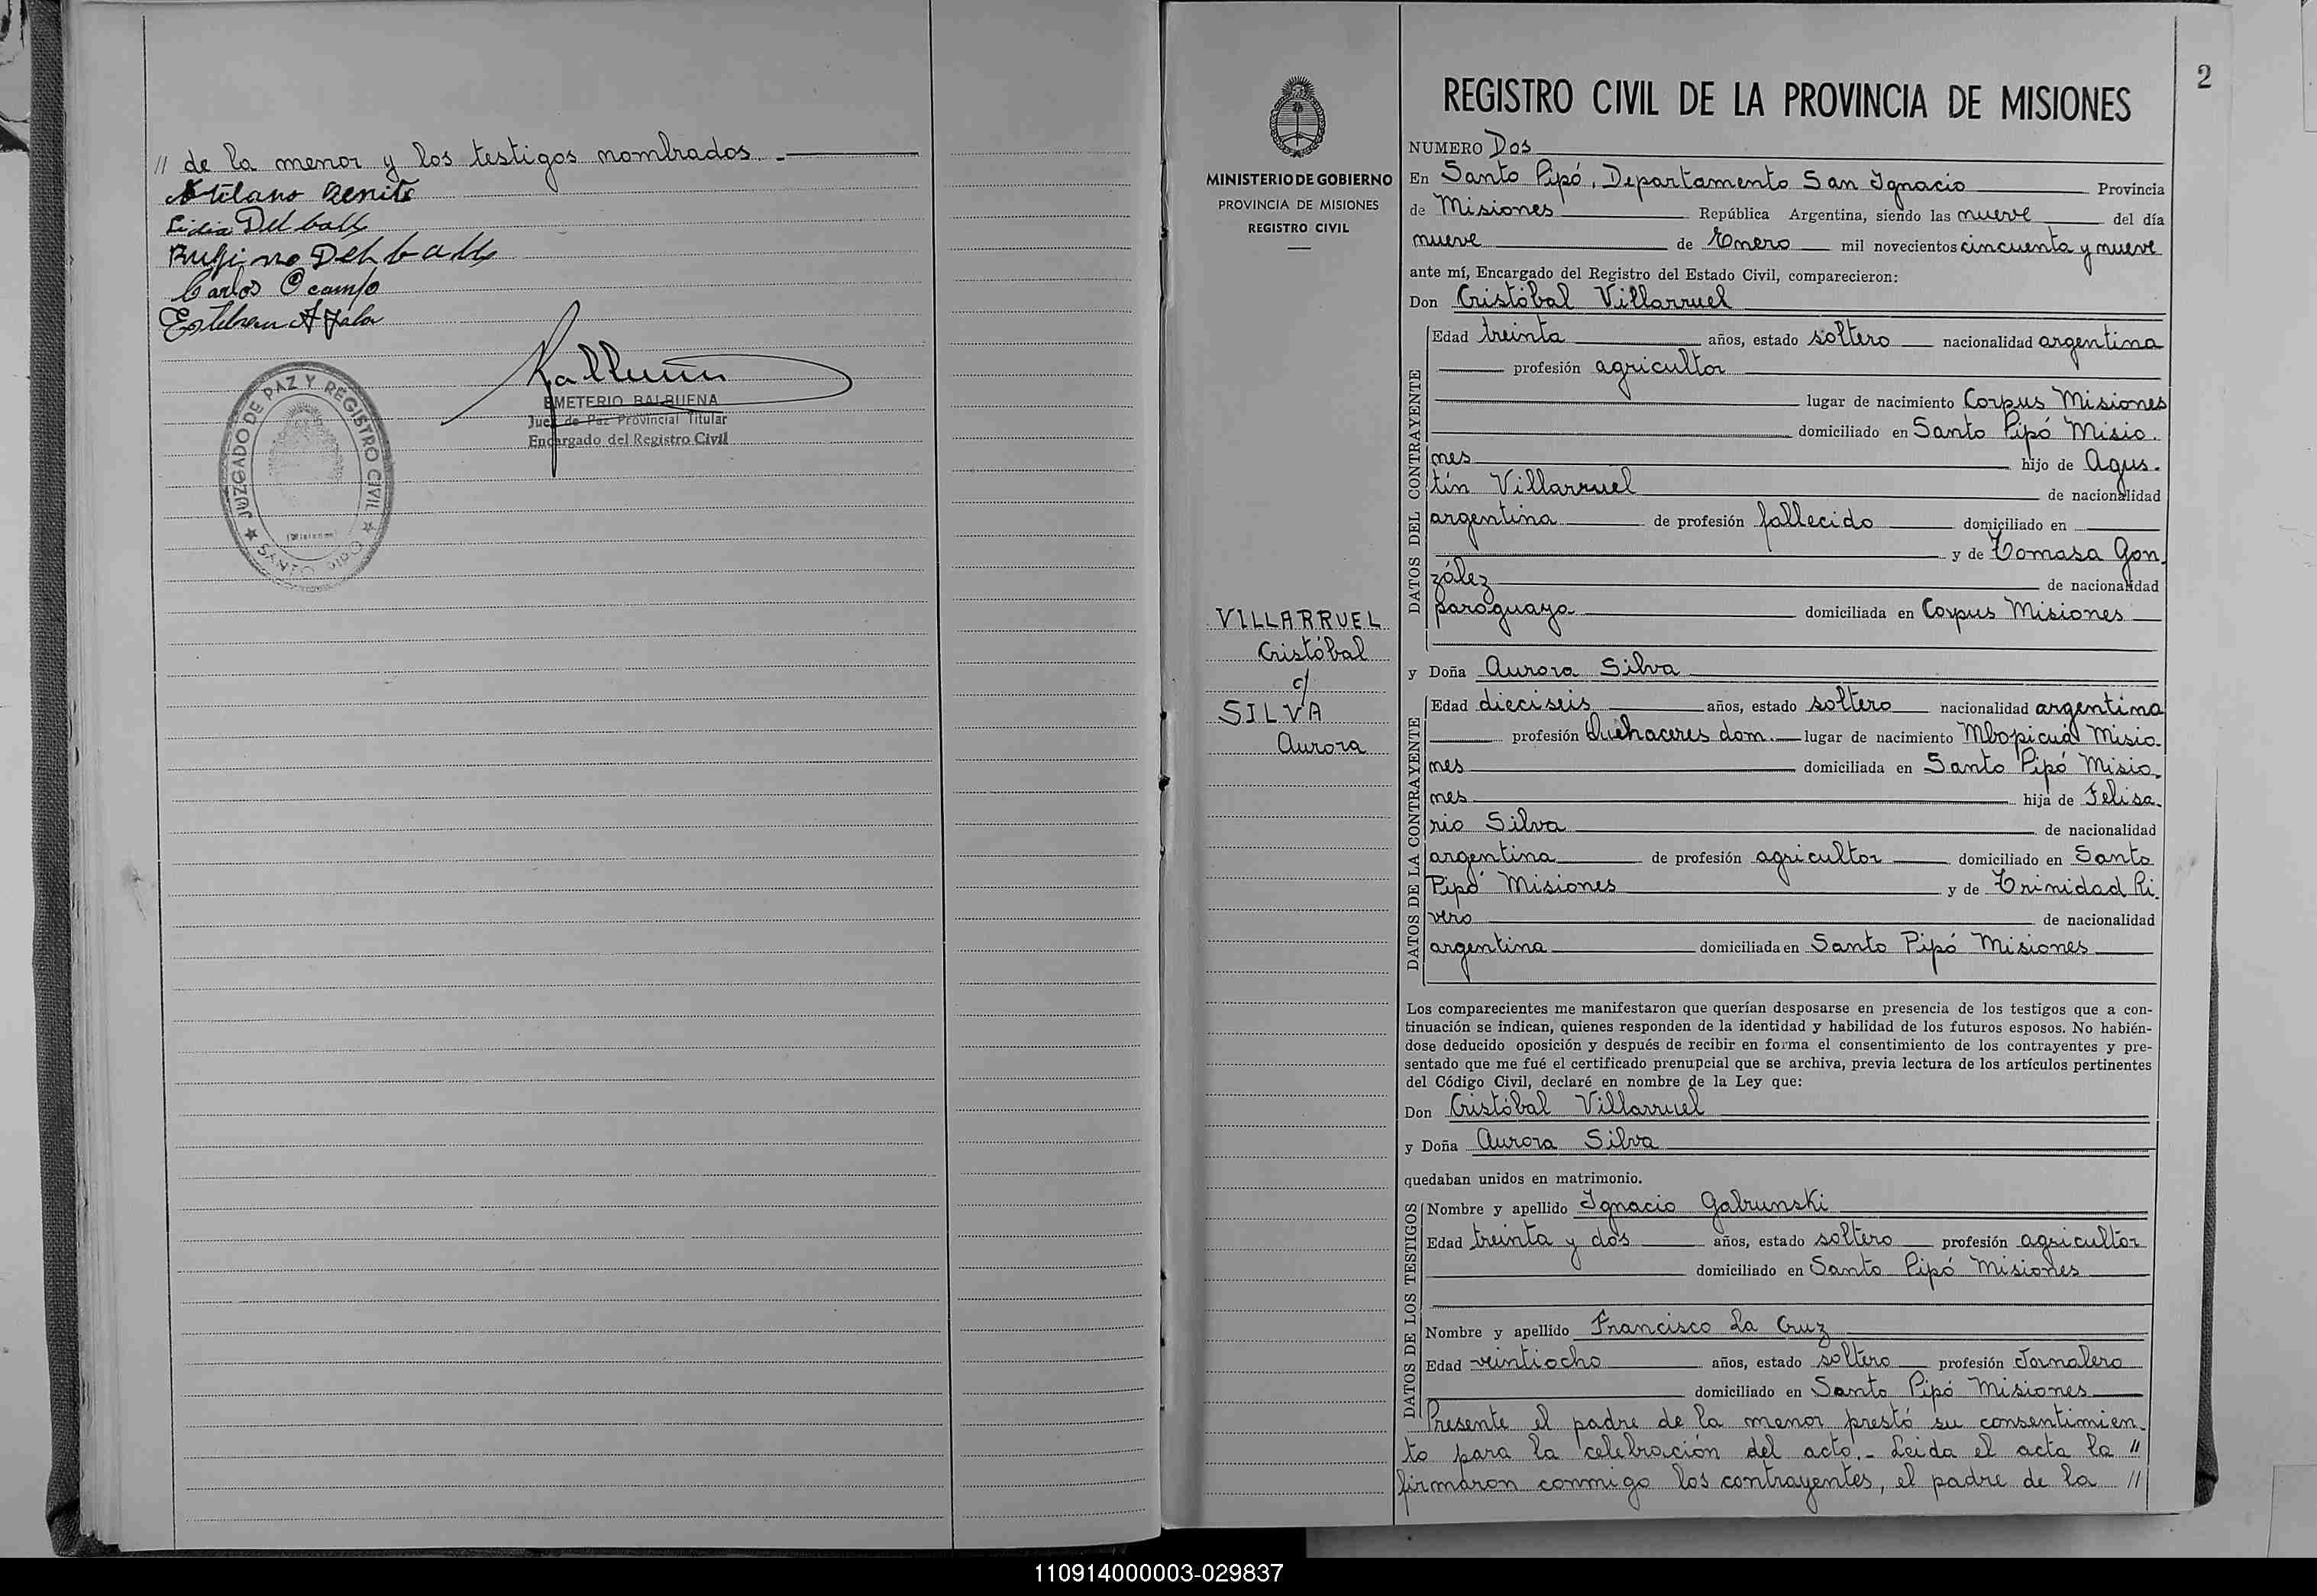 // de la menor y los testigos nombrados.-
Atilano Benite
Lidia Del
Rufino
Carlos Ocampo
Esteban Ayala
EMETERIO BALBUENA
Juez de Paz Provincial Titular
Encargado del Registro Civil
JUZGADO DE PAZ Y REGISTRO CIVIL
(Misiones)
★ SANTO PIPO ★
2
REGISTRO CIVIL DE LA PROVINCIA DE MISIONES
MINISTERIO DE GOBIERNO
PROVINCIA DE MISIONES
REGISTRO CIVIL
VILLARRUEL
Cristóbal
c/
SILVA
Aurora
NUMERO Dos
En Santo Pipó, Departamento San Ignacio Provincia
de Misiones República Argentina, siendo las nueve del día
nueve de Enero mil novecientos cincuenta y nueve
ante mí, Encargado del Registro del Estado Civil, comparecieron:
Don Cristóbal Villarruel
DATOS DEL CONTRAYENTE
Edad treinta años, estado soltero nacionalidad argentina
profesión agricultor
lugar de nacimiento Corpus Misiones
domiciliado en Santo Pipó Misio-
nes hijo de Agus-
tín Villarruel de nacionalidad
argentina de profesión fallecido domiciliado en
y de Tomasa Gon-
zález de nacionalidad
paraguaya domiciliada en Corpus Misiones
y Doña Aurora Silva
DATOS DE LA CONTRAYENTE
Edad dieciseis años, estado soltero nacionalidad argentina
profesión Quehaceres dom. lugar de nacimiento Mbopicuá Misio-
nes domiciliada en Santo Pipó Misio-
nes hija de Felisa-
rio Silva de nacionalidad
argentina de profesión agricultor domiciliado en Santo
Pipó Misiones y de Trinidad Ri-
vero de nacionalidad
argentina domiciliada en Santo Pipó Misiones
Los comparecientes me manifestaron que querían desposarse en presencia de los testigos que a con-
tinuación se indican, quienes responden de la identidad y habilidad de los futuros esposos. No habién-
dose deducido oposición y después de recibir en forma el consentimiento de los contrayentes y pre-
sentado que me fué el certificado prenupcial que se archiva, previa lectura de los artículos pertinentes
del Código Civil, declaré en nombre de la Ley que:
Don Cristóbal Villarruel
y Doña Aurora Silva
quedaban unidos en matrimonio.
DATOS DE LOS TESTIGOS
Nombre y apellido Ignacio Gabrunski
Edad treinta y dos años, estado soltero profesión agricultor
domiciliado en Santo Pipó Misiones
Nombre y apellido Francisco La Cruz
Edad veintiocho años, estado soltero profesión Jornalero
domiciliado en Santo Pipó Misiones
Presente el padre de la menor prestó su consentimien-
to para la celebración del acto.- Leida el acta la //
firmaron conmigo los contrayentes, el padre de la //
110914000003-029837